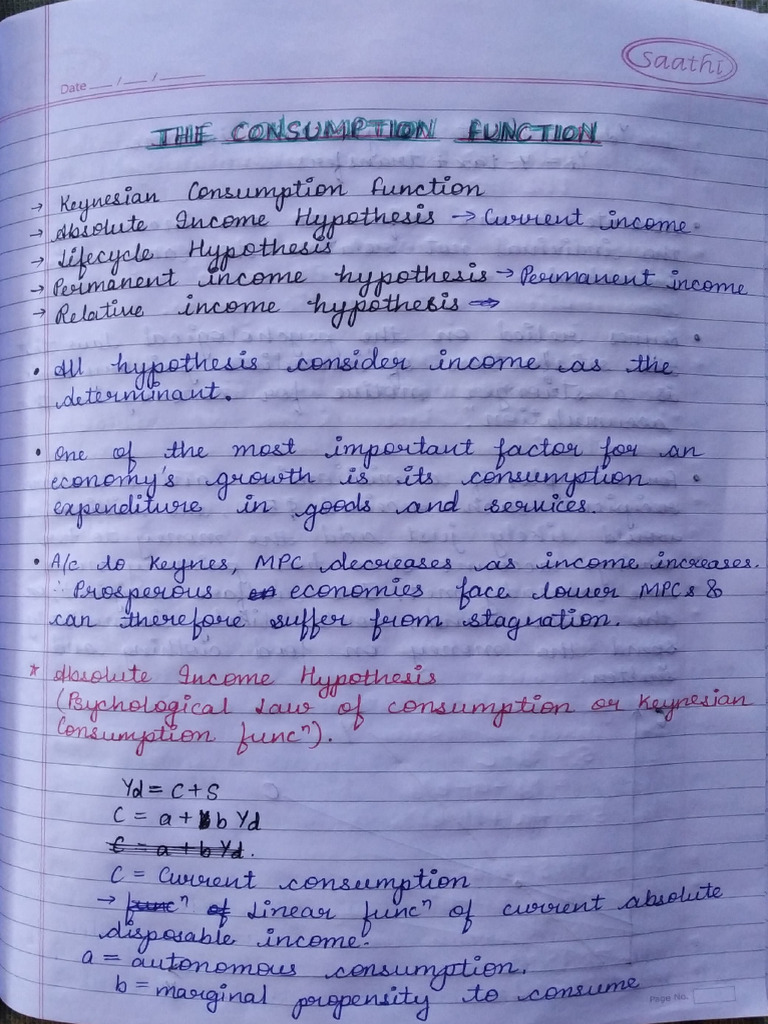 saathi
Date __/__/____
THE CONSUMPTION FUNCTION
→ Keynesian Consumption function
→ Absolute Income Hypothesis → Current income
→ Lifecycle Hypothesis
→ Permanent income hypothesis → Permanent income
→ Relative income hypothesis →
• All hypothesis consider income as the
determinant.
• One of the most important factor for an
economy's growth is its consumption
expenditure in goods and services.
• A/c to Keynes, MPC decreases as income increases.
∴ Prosperous economies face lower MPCs &
can therefore suffer from stagnation.
* Absolute Income Hypothesis
(Psychological Law of consumption or Keynesian
Consumption funcⁿ).
Yd = C + S
C = a + b Yd
C = a + b Yd.
C = Current consumption
→ funcⁿ of Linear funcⁿ of current absolute
disposable income.
a = autonomous consumption.
b = marginal propensity to consume
Page No.